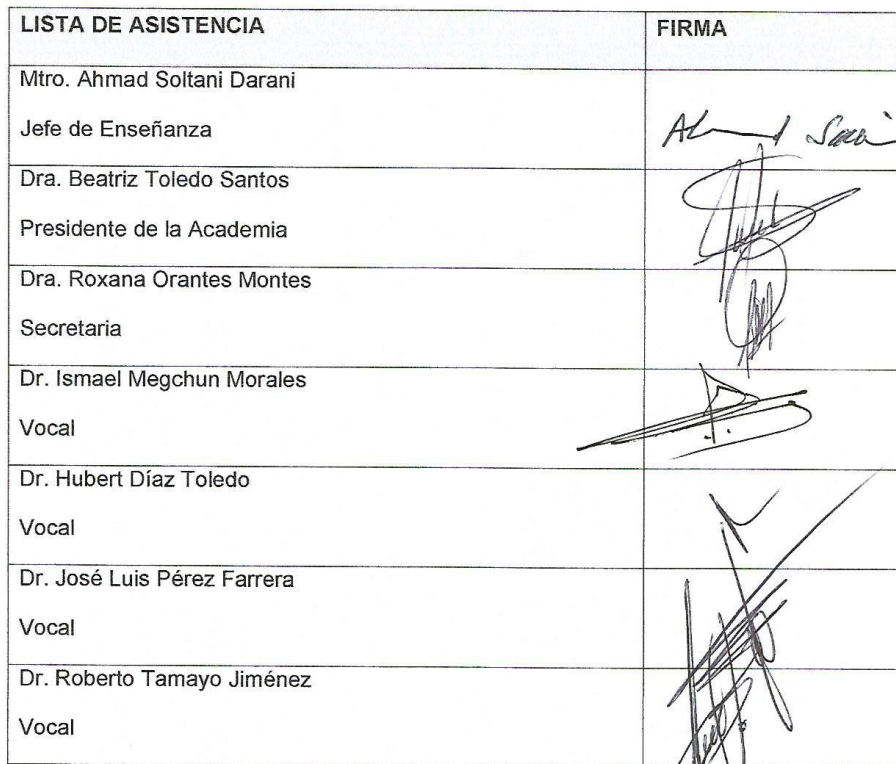 LISTA DE ASISTENCIA FIRMA
Mtro. Ahmad Soltani Darani
Jefe de Enseñanza
Dra. Beatriz Toledo Santos
Presidente de la Academia
Dra. Roxana Orantes Montes
Secretaria
Dr. Ismael Megchun Morales
Vocal
Dr. Hubert Díaz Toledo
Vocal
Dr. José Luis Pérez Farrera
Vocal
Dr. Roberto Tamayo Jiménez
Vocal